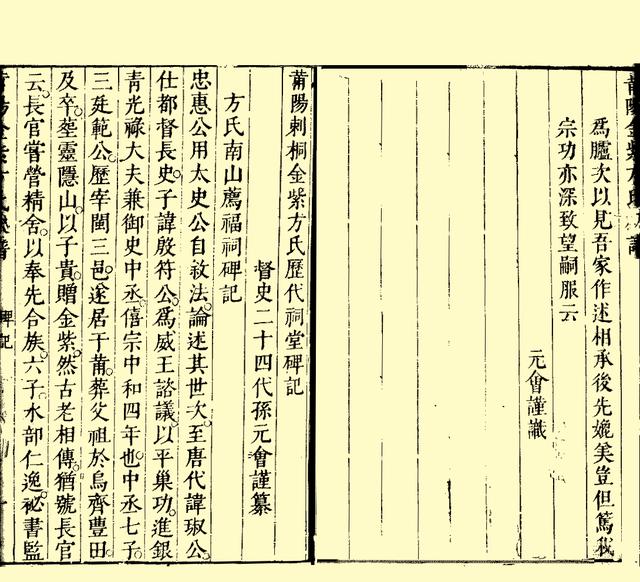 爲臚次以見吾家作述相承後先媲美豈但篤我
宗功亦深致望嗣服云
元會謹識
莆陽刺桐金紫方氏歷代祠堂碑記
督史二十四代孫元會謹纂
方氏南山薦福祠碑記
忠惠公用太史公自敘法論述其世次至唐代諱琡公
仕都督長史子諱殷符公爲威王諮議以平巢功進銀
青光祿大夫兼御史中丞僖宗中和四年也中丞七子
三廷範公歷宰閩三邑遂居于莆葬父祖於烏齊豐田
及卒塟靈隱山以子貴贈金紫然古老相傳猶號長官
云長官嘗營精舍以奉先合族六子水部仁逸祕書監
碑記